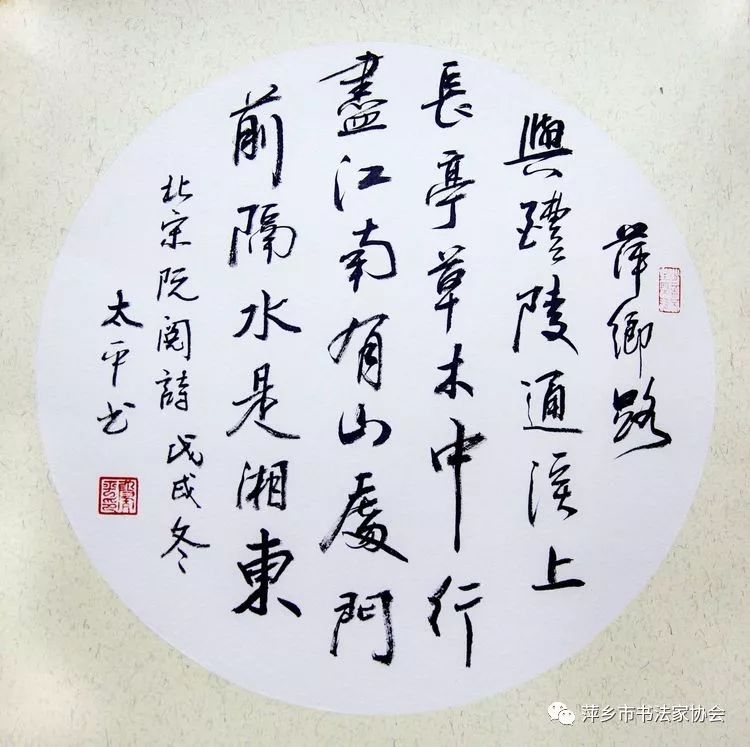 萍鄉路
與醴陵通溪上
長亭草木中行
盡江南有山處門
前隔水是湘東
北宋阮閱詩戊戌冬
太平书
萍乡市书法家协会